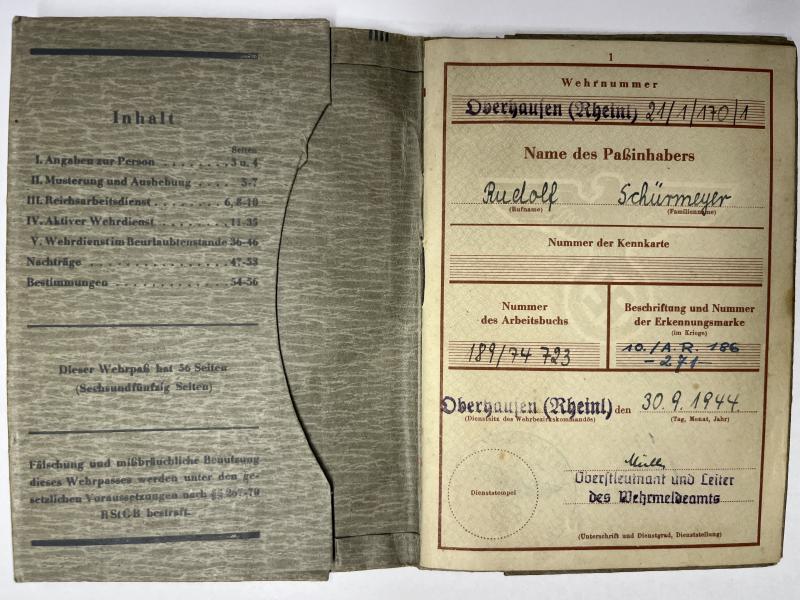 Inhalt
Seiten
I. Angaben zur Person . . . . . . . . 3 u. 4
II. Musterung und Aushebung . . . . 5-7
III. Reichsarbeitsdienst . . . . . . . 6, 8-10
IV. Aktiver Wehrdienst . . . . . . . . 11-35
V. Wehrdienst im Beurlaubtenstande 36-46
Nachträge . . . . . . . . . . . . . . . 47-53
Bestimmungen . . . . . . . . . . . . . 54-56
Dieser Wehrpaß hat 56 Seiten
(Sechsundfünfzig Seiten)
Fälschung und mißbräuchliche Benutzung
dieses Wehrpasses werden unter den ge-
setzlichen Voraussetzungen nach §§ 267-70
RStGB bestraft.
1
Wehrnummer
Oberhausen (Rheinl) 21/1/170/1
Name des Paßinhabers
Rudolf Schürmeyer
(Rufname) (Familienname)
Nummer der Kennkarte
Nummer
des Arbeitsbuchs
189/74 723
Beschriftung und Nummer
der Erkennungsmarke
(im Kriege)
10./A.R. 186
- 271 -
Oberhausen (Rheinl) den 30.9.1944.
(Dienstsitz des Wehrbezirkskommandos) (Tag, Monat, Jahr)
Dienststempel
Oberstleutnant und Leiter
des Wehrmeldeamts
(Unterschrift und Dienstgrad, Dienststellung)